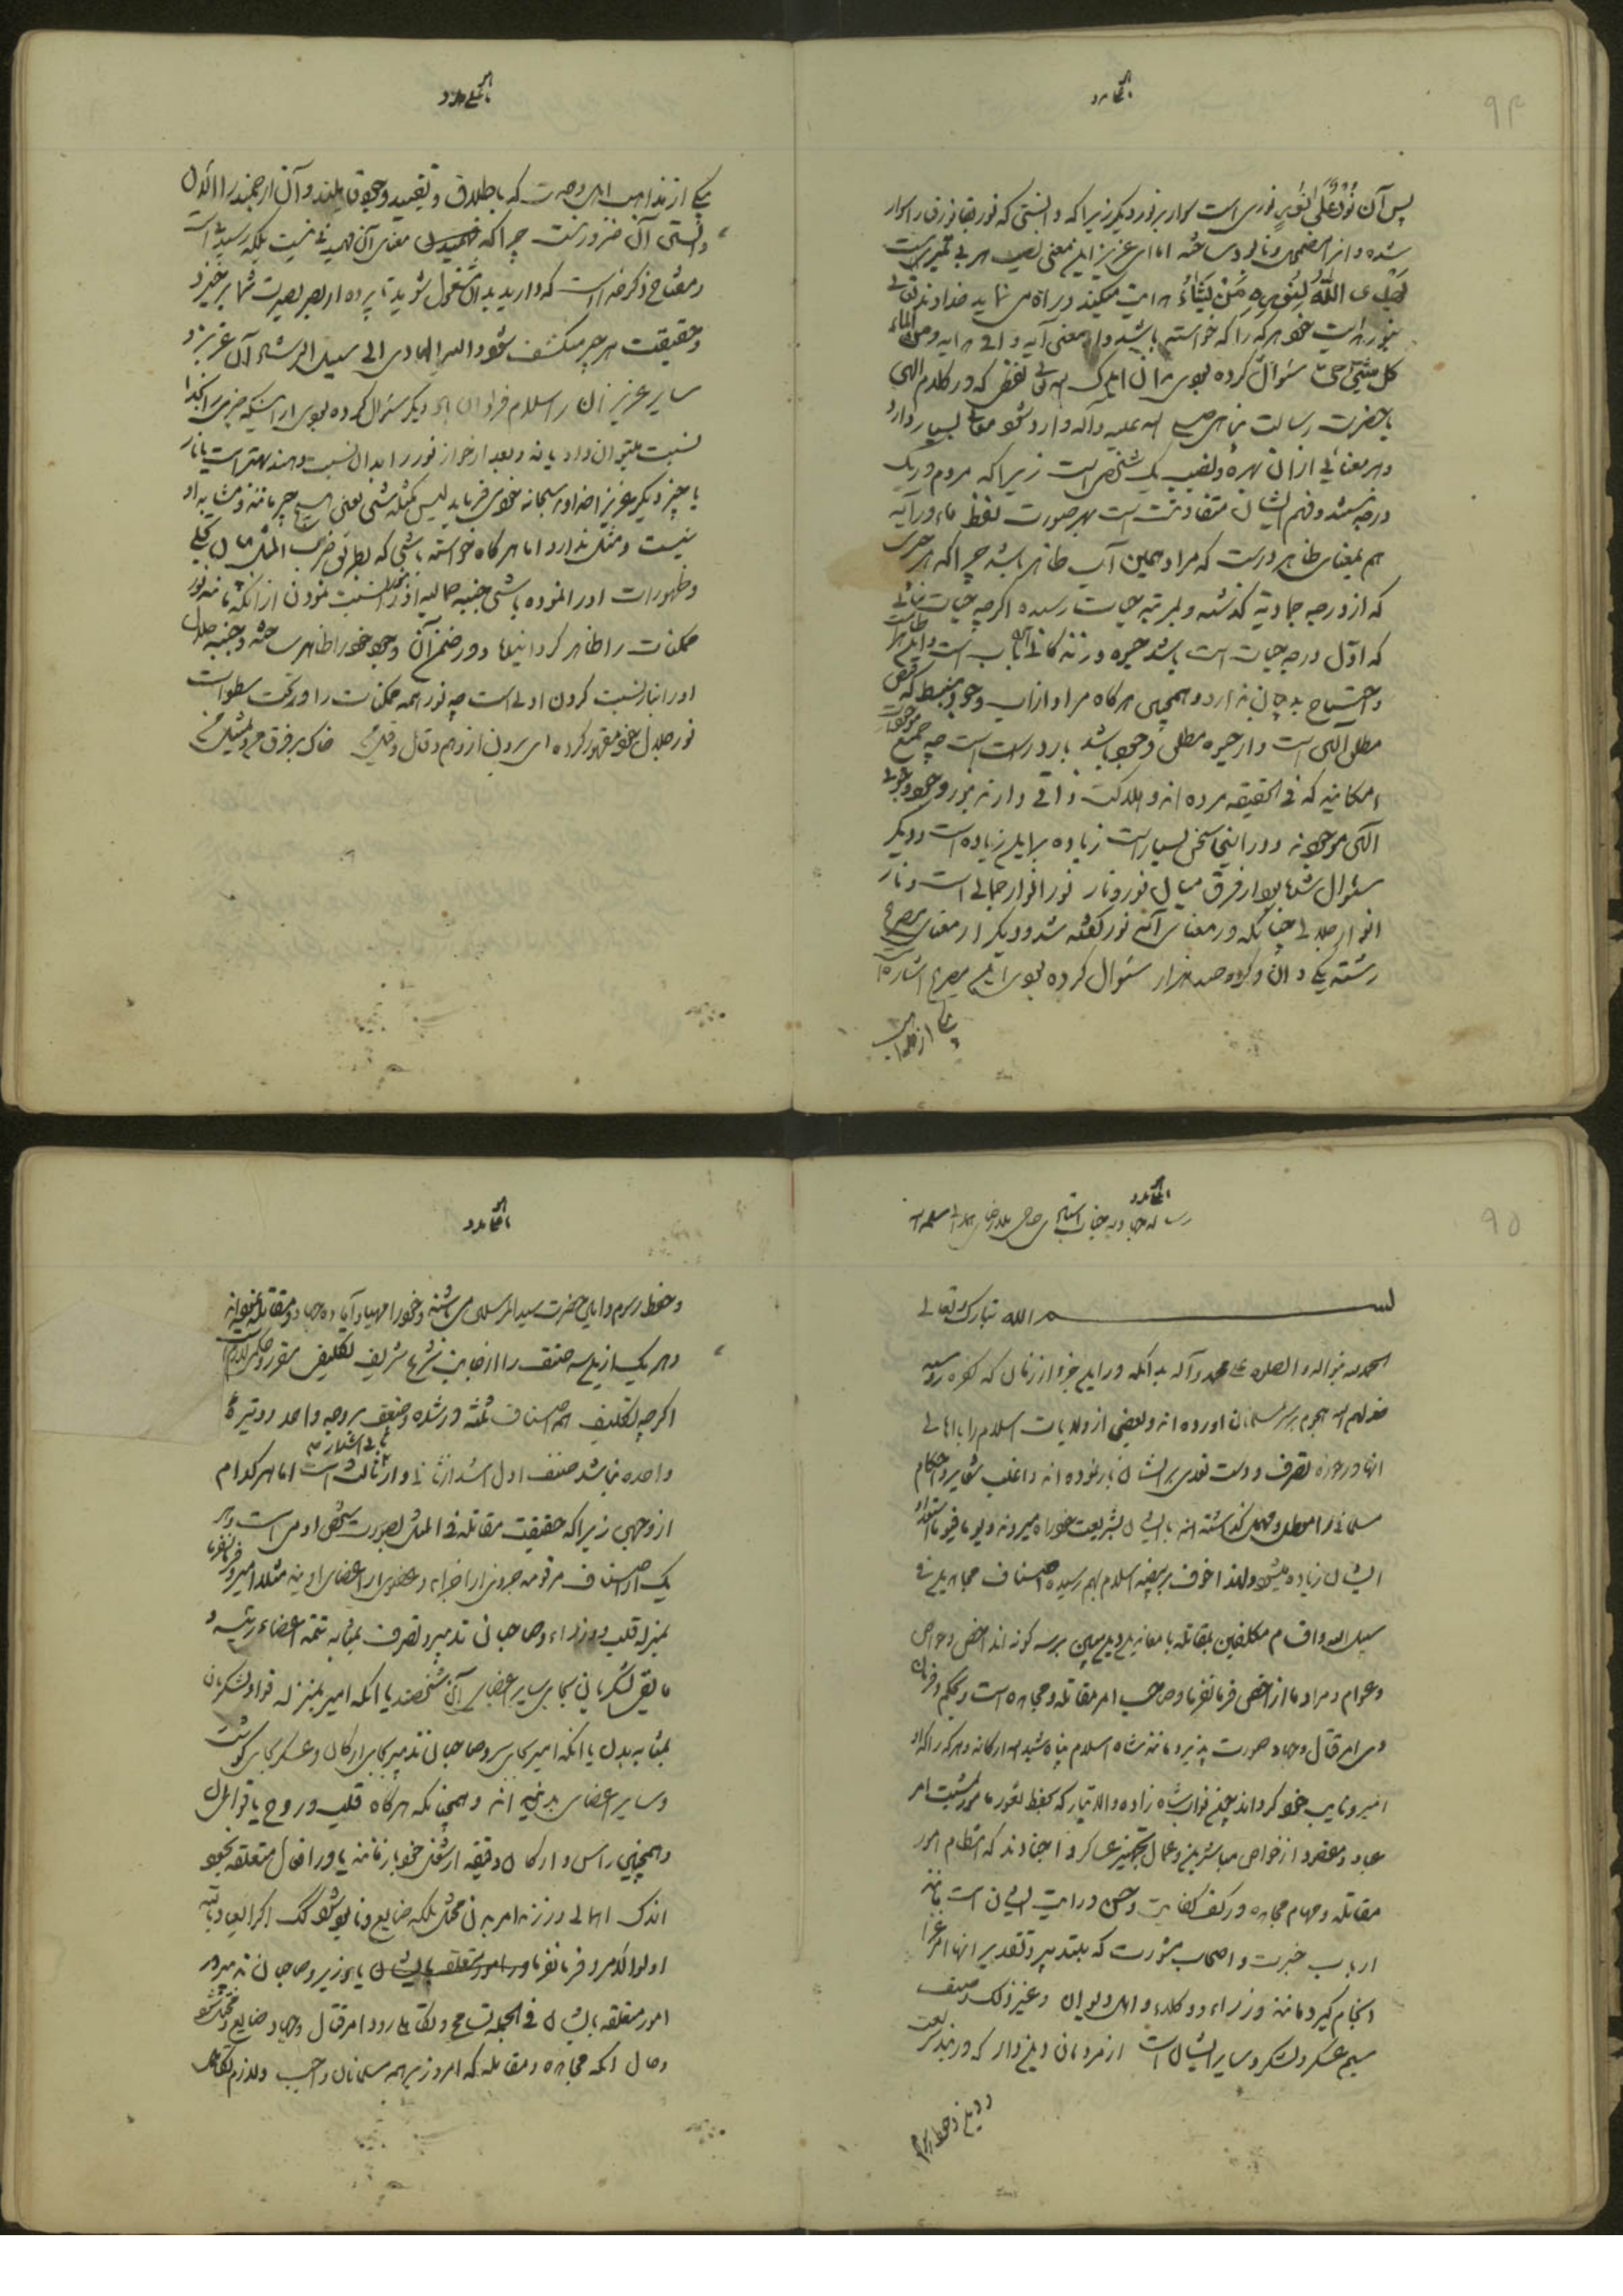 ۹۴
پس آن نُورٌ عَلیٰ نُورٍ نوری است سوار بر نور دیگر زیرا که دانستی که نور
شده و انرا مضمحل و نابود ساخته اما ای عزیز این معنی نصیب هر بی
یَهْدِی اللّهُ لِنُورِهِ مَنْ یَشَاءُ هدایت میکند و راه می نماید خداوند تعالی
بنور هدایت خود هر که را که خواسته باشد و از معنی آیه وافی هدایه و من الماء
کل شیءٍ حیّ سئوال کرده بودی بدان که هر لفظی که در کلام الهی
یا حضرت رسالت پناهی صلی الله علیه وآله وارد شود معانی بسیار دارد
و هر معنائی از ان بهره و نصیب یک شخص است زیرا که مردم در یک
درجه نیستند و فهم ایشان متفاوتست بهر صورت لفظ ماء در آیه
هم بمعنای ظاهر درست که مراد همین آب ظاهر باشد چرا که هر چیزی
که از درجه جمادیة گذشته و بمرتبه حیات رسیده اگر چه حیات نباتی
که اوّل درجه حیات است باشد حیوة و زندگانی آن بآب است و این ظاهر است
و احتیاج به بیان ندارد و همچنین هر گاه مراد از آب وجود منبسط که فیض
مطلق الهی است و از حیوة مطلق وجود باشد باز درست است چه جمیع موجودات
امکانیه که فی الحقیقه مرده اند و هلاکت ذاتی دارند بنور وجود
الهی موجودند و در اینجا سخن بسیار است زیاده بر این زیاده است و دیگر
سئوال شده بود از فرق میان نور و نار نور انوار جمالی است و نار
انوار جلالی چنانکه در معنای آیه نور گفته شد و دیگر از معنای مصرع
رشته یکی دان و گره صد هزار سئوال کرده بودی این مصرع اشاره
یکی از مذاهب
یکی از مذاهب اهل وحدت که باطلاق و تقیید وجود قایلند و آن ارجمند را الآن
دانستن آن ضرور نیست چرا که معنای آن فهمیدنی نیست بلکه رسیدنی است
و مفتاح ذکر خداست که دارید بدان مشغول شوید تا پرده از بصر بصیرت شما بر خیزد
و حقیقت هر چیز منکشف شود والله الهادی الی سبیل الرشاد آن عزیز و
سایر عزیزان را سلام فراوان دیگر سئوال کرده بودی از اینکه چیزی را بخدا
نسبت میتوان داد یا نه و بعد از جواز نور را بدان نسبت دهند بهتر است یا نار
یا چیز دیگر عزیزا خداوند سبحانه خود میفرماید لیس کمثله شیء یعنی هیچ چیز مانند و مشابه او
نیست و مثل ندارد اما هر گاه خواسته باشی که بطریق ضرب المثل بیان تجلی
و ظهورات او را نموده باشی جنبه جمالیه او را بنور نسبت نمودن از آنکه مانند نور
ممکنات را ظاهر گردانیده و در ضمن آن وجود خود را ظاهر ساخته و جنبه جلال
او را بنار نسبت کردن اولی است چه نور همه ممکنات را در تحت سطوات
نور جلال خود مقهور کرده ای برون از وهم و قال و قیل من خاک بر فرق من و تمثیل من
۹۵
بسم الله تبارک و تعالی
الحمد لله والصلوة علی محمد وآله بدانکه در این جزو از زمان که کفره روسیه
خذلهم الله هجوم بر سر مسلمانان آورده اند و بعضی از ولایات اسلام را با اهالی
انها در حوزه تصرف و دست تعدی بر ایشان باز نموده اند و اغلب شعایر و احکام
مسلمانی را معطل و مهمل گذاشته اند با ایشان بشریعت خود راه میروند و یوما فیوما استعداد
ایشان زیاده میشود و لهذا خوف بر بیضه اسلام بهم رسیده اصناف مجاهدین فی
سبیل الله و اقسام مکلفین بمقاتله با معاندین دین مبین بر سه گونه اند اخص و خواص
و عوام و مراد ما از اخص فرمانفرما و صاحب امر مقاتله و مجاهده است که بحکم و فرمان
وی امر قتال و جهاد صورت پذیرد مانند شاه اسلام پناه شید الله ارکانه و هر که را که او
امیر و نایب خود گرداند چون نواب شاهزاده والاتبار که بحفظ ثغور مامور و مشیت امر
جهاد و مقصود از خواص مباشرین و عمال تجهیز عساکر و اجنادند که انتظام امور
مقاتله و مهام مجاهده در کف کفایت و حسن درایت ایشان است مانند
ارباب خبرت و اصحاب مشورت که بتدبیر و تقدیر انها امر غزا
انجام گیرد مانند وزراء و وکلاء و اهل دیوان و غیر ذلک و صنف
سیم عسکر و لشکر و سایر ایشان است از مردمان دین دار که در بند شریعت
و دین و حفظ رسوم
و حفظ رسوم و این حضرت سید المرسلین می باشند و خود را مهیا و آماده جهاد و مقاتله نموده اند
و هر یک از این سه صنف را از جانب شرع شریف تکلیفی مقرر و حکمی لازم است
اگر چه تکلیف همه اصناف ثلثه ورشده و ضعف بر وجه واحد و وتیره
واحده نباشد صنف اول اشد از ثانی و ثانی اشد از ثالث است اما هر کدام
از وجهی زیرا که حقیقت مقاتله فی المثل بصورت شخص آدمی است و هر
یک از اصناف مرقومه جزوی از اجزاء و عضوی از اعضای اویند مثلا امیر و فرمانفرما
بمنزله قلب و وزراء و صاحبان تدبیر و تصرف بمثابه تتمه اعضاء رئیسه و
مابقی لشکریان بجای سایر اعضای آن شخصند یا انکه امیر بمنزله قوا و لشکریان
بمثابه بدن یا انکه امیر بجای سر و صاحبان تدبیر بجای ارکان و عسکر بجای گوشت
و سایر اعضای بدنیه اند و همچنانکه هر گاه قلب و روح یا قوا
و همچنین راس و ارکان دقیقه از شغل خود باز مانند یا در افعال متعلقه بخود
اندک اهمالی ورزند امر بدن مختل بلکه ضایع و نابود شود
اولوا الامر و فرمانفرما و یا وزیر و صاحبان تدبیر در
امور متعلقه بایشان فی الجمله تسامح و تکاهلی رود امر قتال و جهاد ضایع و مختل شود
و حال انکه مجاهده و مقاتله که امروز بر همه مسلمانان واجب و لازم